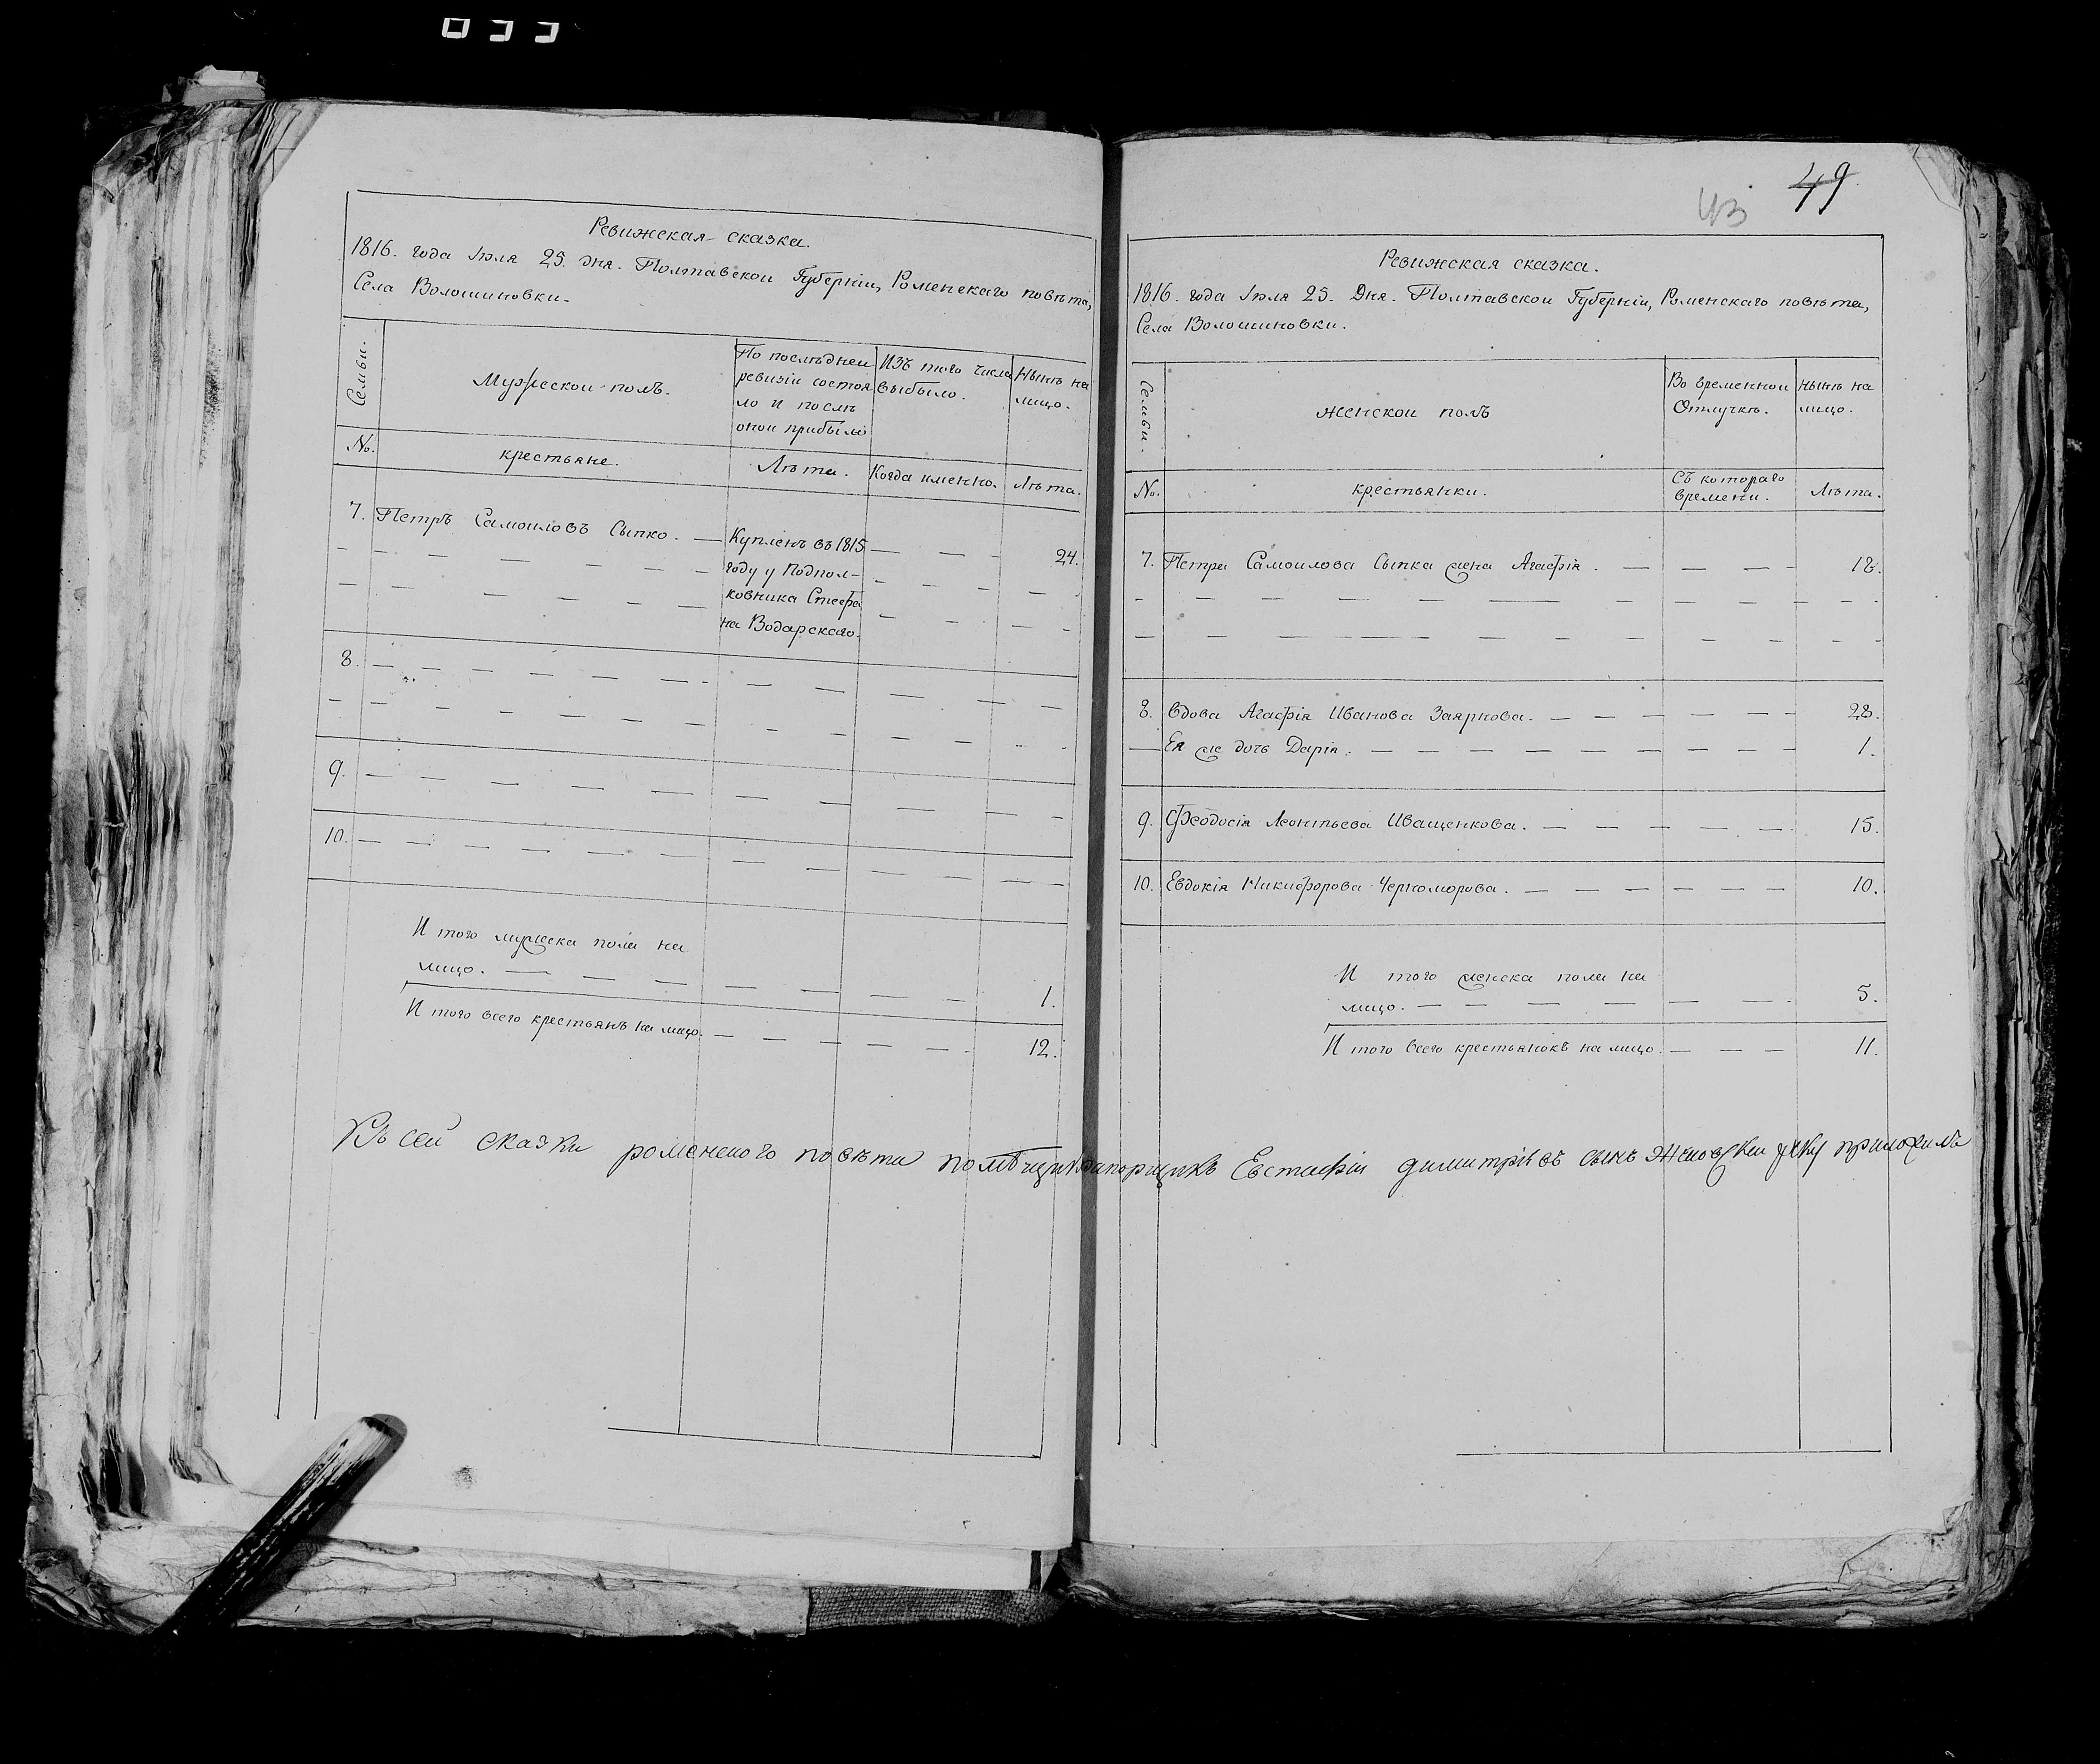 033
Ревижская сказка.
1816. года Iюля 25. дня. Полтавскои Губернiи, Роменскаго повѣта,
Села Волошиновки.
Семьи.
Мужескои полъ.
По послѣднеи
ревизiи состоя
ло и послѣ
онои прибыло
Изъ того числа
выбыло.
Нынѣ на
лицо.
No.
крестьяне.
Лѣта.
Когда именно.
Лѣта.
7. Петръ Самоиловъ Сыпко. — Купленъ въ 1815 — — — 24.
году у Подпол-
ковника Стефа
на Водарскаго.
8.
9.
10.
И того мужеска пола на
лицо. — — — — — — — 1.
И того всего крестьянъ на лицо. — — — — — — 12.
43 49
Ревижская сказка.
1816. года Iюля 25. Дня. Полтавскои Губернiи, Роменскаго повѣта,
Села Волошиновки.
Семьи.
женскои полъ
Во временнои
Отлучкѣ.
нынѣ на
лицо.
No.
крестьянки.
Съ котораго
времени.
Лѣта.
7. Петра Самоилова Сыпка жена Агафiя. — — — — 18.
8. Вдова Агафiя Иванова Заярнова. — — — — — — 28.
— Ея же дочь Дарiя. — — — — — — — — — 1.
9. Феодосiя Леонтьева Иващенкова. — — — — — — 15.
10. Евдокiя Никифорова Черноморова. — — — — — — 10.
И того женска пола на
лицо. — — — — — — — 5.
И того всего крестьянокъ на лицо. — — — 11.
Къ сеи сказки роменского повѣта помѣщикъ прапорщикъ Евстафiи димитрiевъ сынъ руку приложилъ